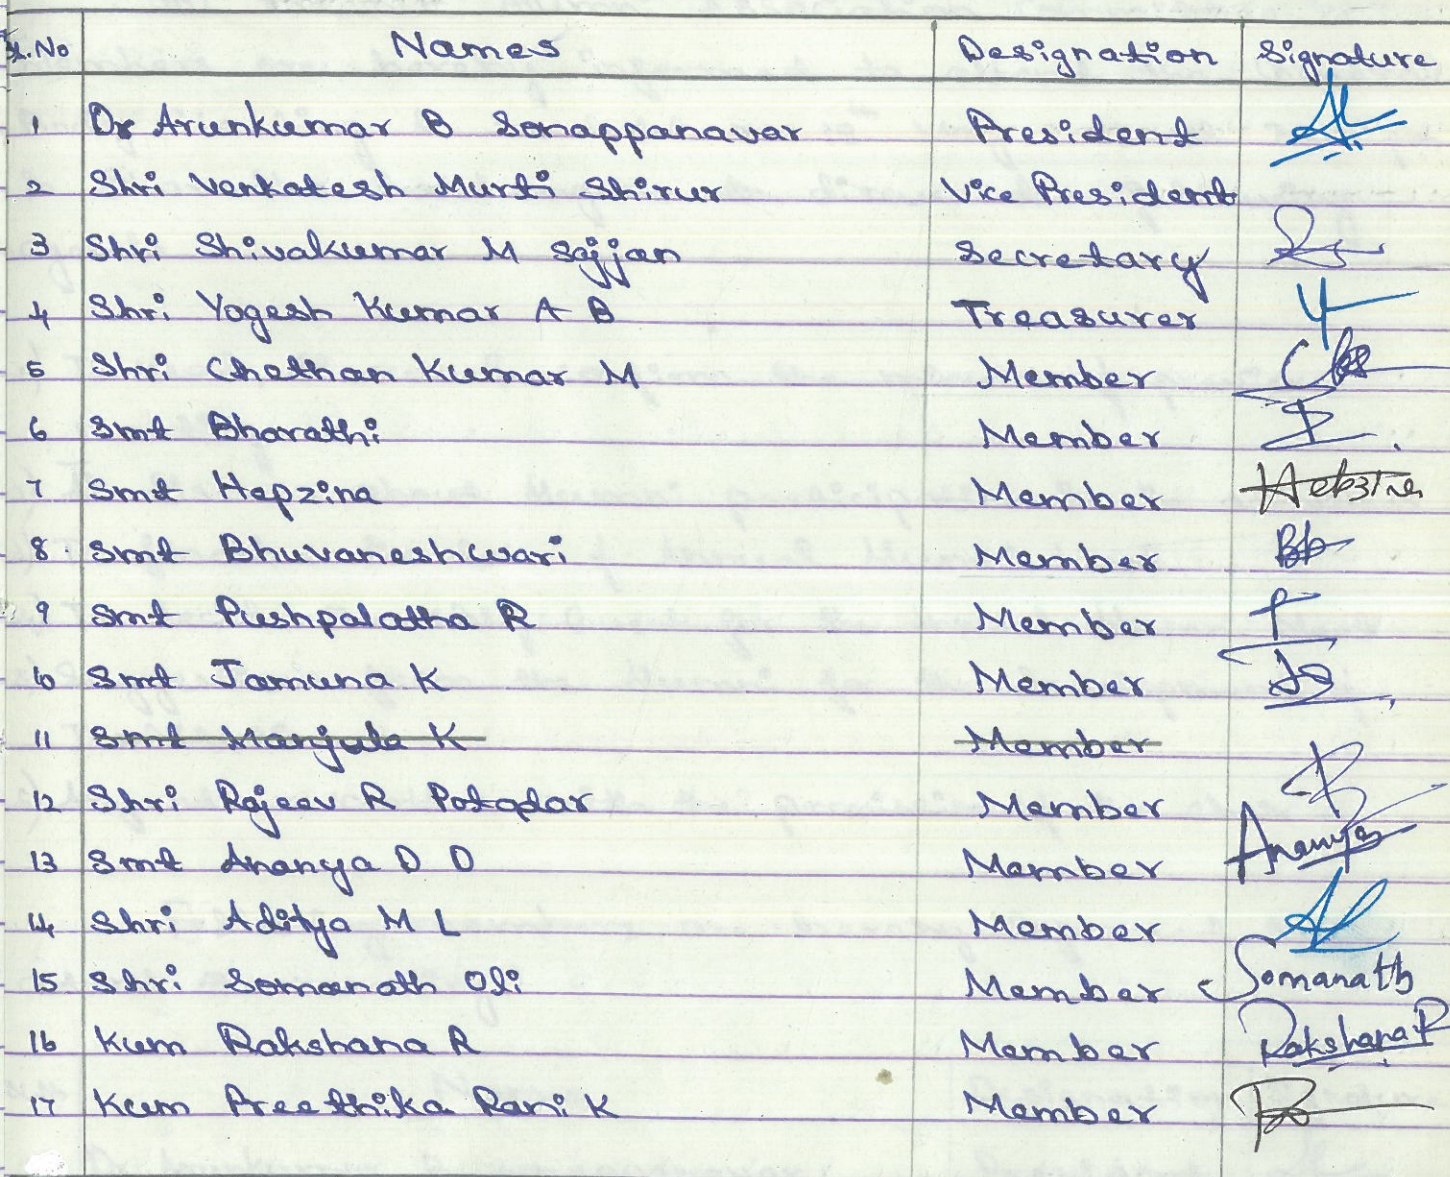 Sl.No Names Designation Signature
1 Dr Arunkumar B Sonappanavar President
2 Shri Venkatesh Murti Shirur Vice President
3 Shri Shivakumar M Sajjan Secretary
4 Shri Yogesh Kumar A B Treasurer
5 Shri Chethan Kumar M Member
6 Smt Bharathi Member
7 Smt Hepzina Member
8 Smt Bhuvaneshwari Member Bb
9 Smt Pushpalatha R Member
10 Smt Jamuna K Member
11 Smt Manjula K Member
12 Shri Rajeev R Potadar Member
13 Smt Ananya D D Member Ananya
14 Shri Aditya M L Member
15 Shri Somanath Oli Member Somanath
16 Kum Rakshana R Member Rakshana R
17 Kum Preethika Rani K Member